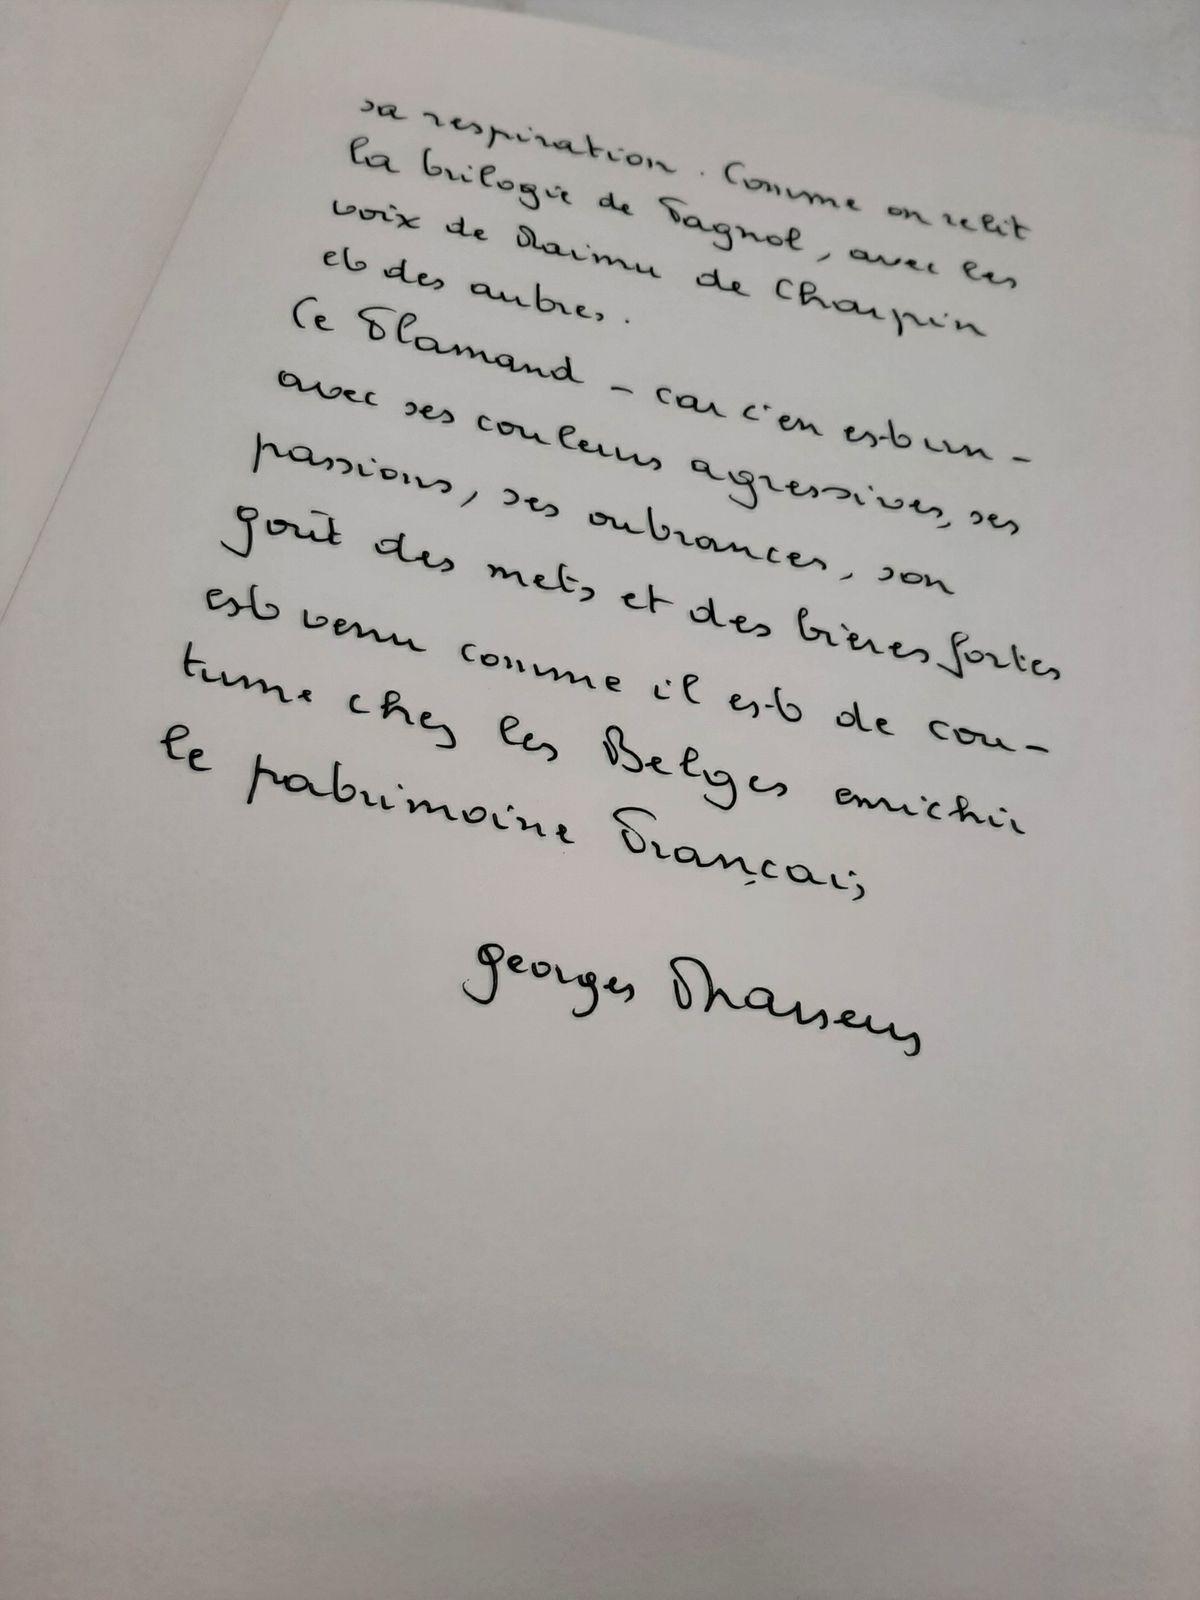 sa respiration. Comme on relit
la trilogie de Pagnol, avec les
voix de Raimu de Charpin
et des autres.
Ce Flamand - car c'en est un -
avec ses couleurs agressives, ses
passions, ses outrances, son
goût des mets et des bières fortes
est venu comme il est de cou-
tume chez les Belges enrichir
le patrimoine Français
georges Brassens